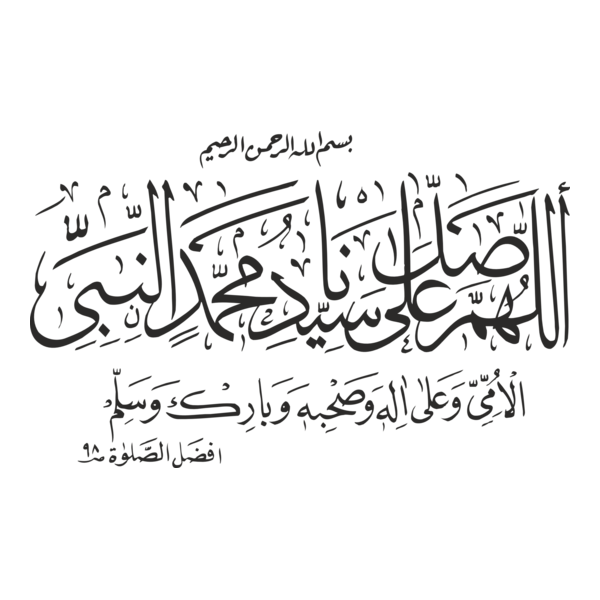 بسم الله الرحمن الرحيم
أللّٰهُمَّ صَلِّ عَلٰى سَيِّدِنَا مُحَمَّدٍ النَّبِيِّ
الْاُمِّيِّ وَعَلٰى اٰلِهٖ وَصَحْبِهٖ وَبَارِكْ وَسَلِّمْ
افضل الصلوٰة ص٩٨